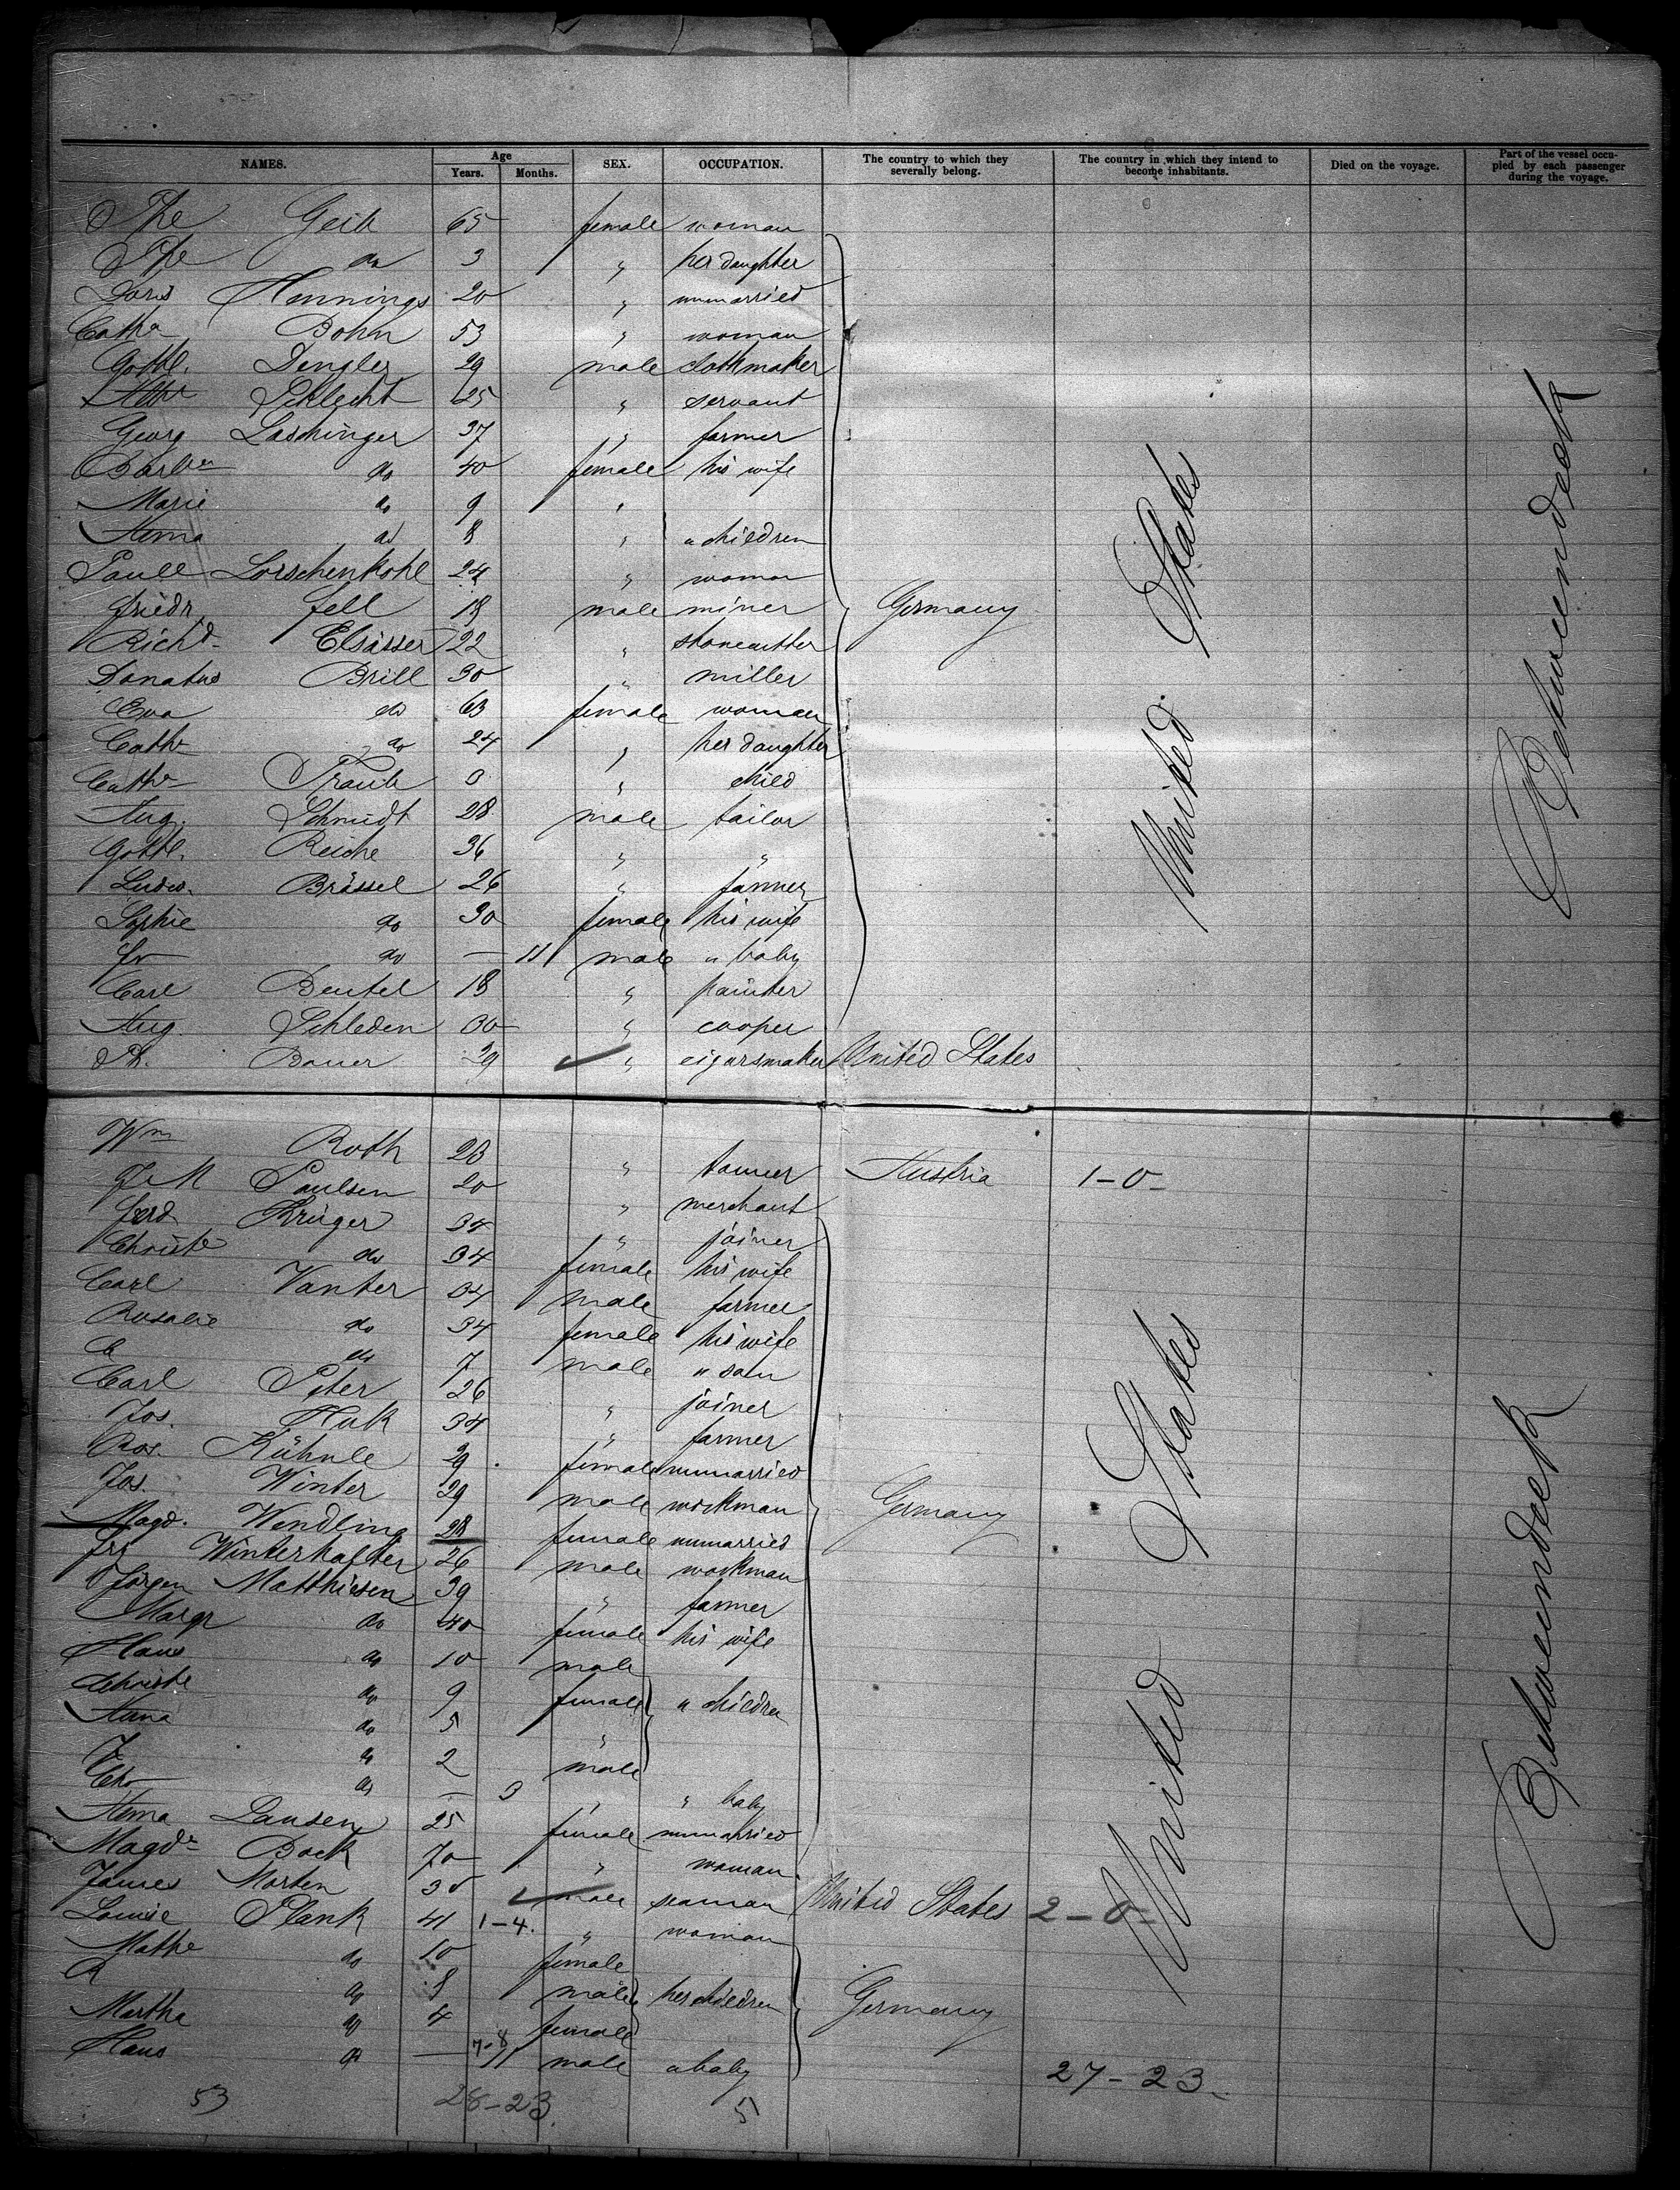 NAMES. Age Years. Months. SEX. OCCUPATION. The country to which they severally belong. The country in which they intend to become inhabitants. Died on the voyage. Part of the vessel occupied by each passenger during the voyage.
Phe Geib 65 female woman
Phe do 3 " her daughter
Doris Hennings 20 " unmarried
Cathe Bohm 53 " woman
Gottl. Dengler 29 male clothmaker
Schlecht 25 " servant
Georg Laschinger 37 " farmer
Barba do 40 female his wife
Marie do 9 "
Anna do 8 " " children
Paull Lorschenkohl 24 " woman
Friedr. Fell 18 male miner Germany
Richd. Elsässer 22 " stonecutter
Donatus Brill 30 " miller
Eva do 63 female woman
Cathe do 24 " her daughter
Cathe Traub 9 " child
Aug. Schmidt 28 male tailor
Gottl. Reiche 36 " "
Ludw. Brüssel 26 " farmer
Sophie do 30 female his wife
Fr do — 11 male " baby
Carl Beutel 18 " painter
Aug. Schleden 30 " cooper
Ph. Bauer 29 " cigarsmaker United States
United States
Betweendeck
Wm Roth 23 " tanner Austria 1-0-
J M Paulsen 20 " merchant
Ferd. Krüger 34 " joiner
Christe do 34 female his wife
Carl Vanter 34 male farmer
Rosalie do 34 female his wife
C do 7 male " son
Carl Peter 26 " joiner
Jos. Huk 34 " farmer
Ros. Kühnle 29 female unmarried
Jos. Winter 29 male workman Germany
Magd. Wendling 28 female unmarried
Frz Winterhalter 26 male workman
Jörgen Matthiesen 39 " farmer
Margr do 40 female his wife
Hans do 10 male
Christe do 9 female " children
Anna do 5 "
J do 2 male
Chr do — 3 " " baby
Anna Lausen 25 female unmarried
Magde Bock 70 " woman
James Morten 30 male seaman United States 2-0-
Louise Plank 41 1-4. " woman
Mathe do 10 female
R do 8 male her children Germany
Martha do 4 female
Hans do — 7-8 11 male a baby
United States
Betweendeck
27-23-
53 28-23. 5